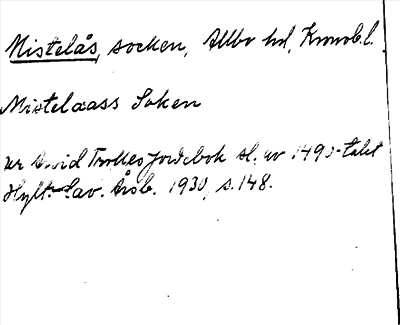 Mistelås, socken, Allbo hd, Kronob. l.
Mistelaass Soken
ur Arvid Trolles Jordebok sl. av 1490-talet
Hylt.-Cav. Årsb. 1930, s. 148.